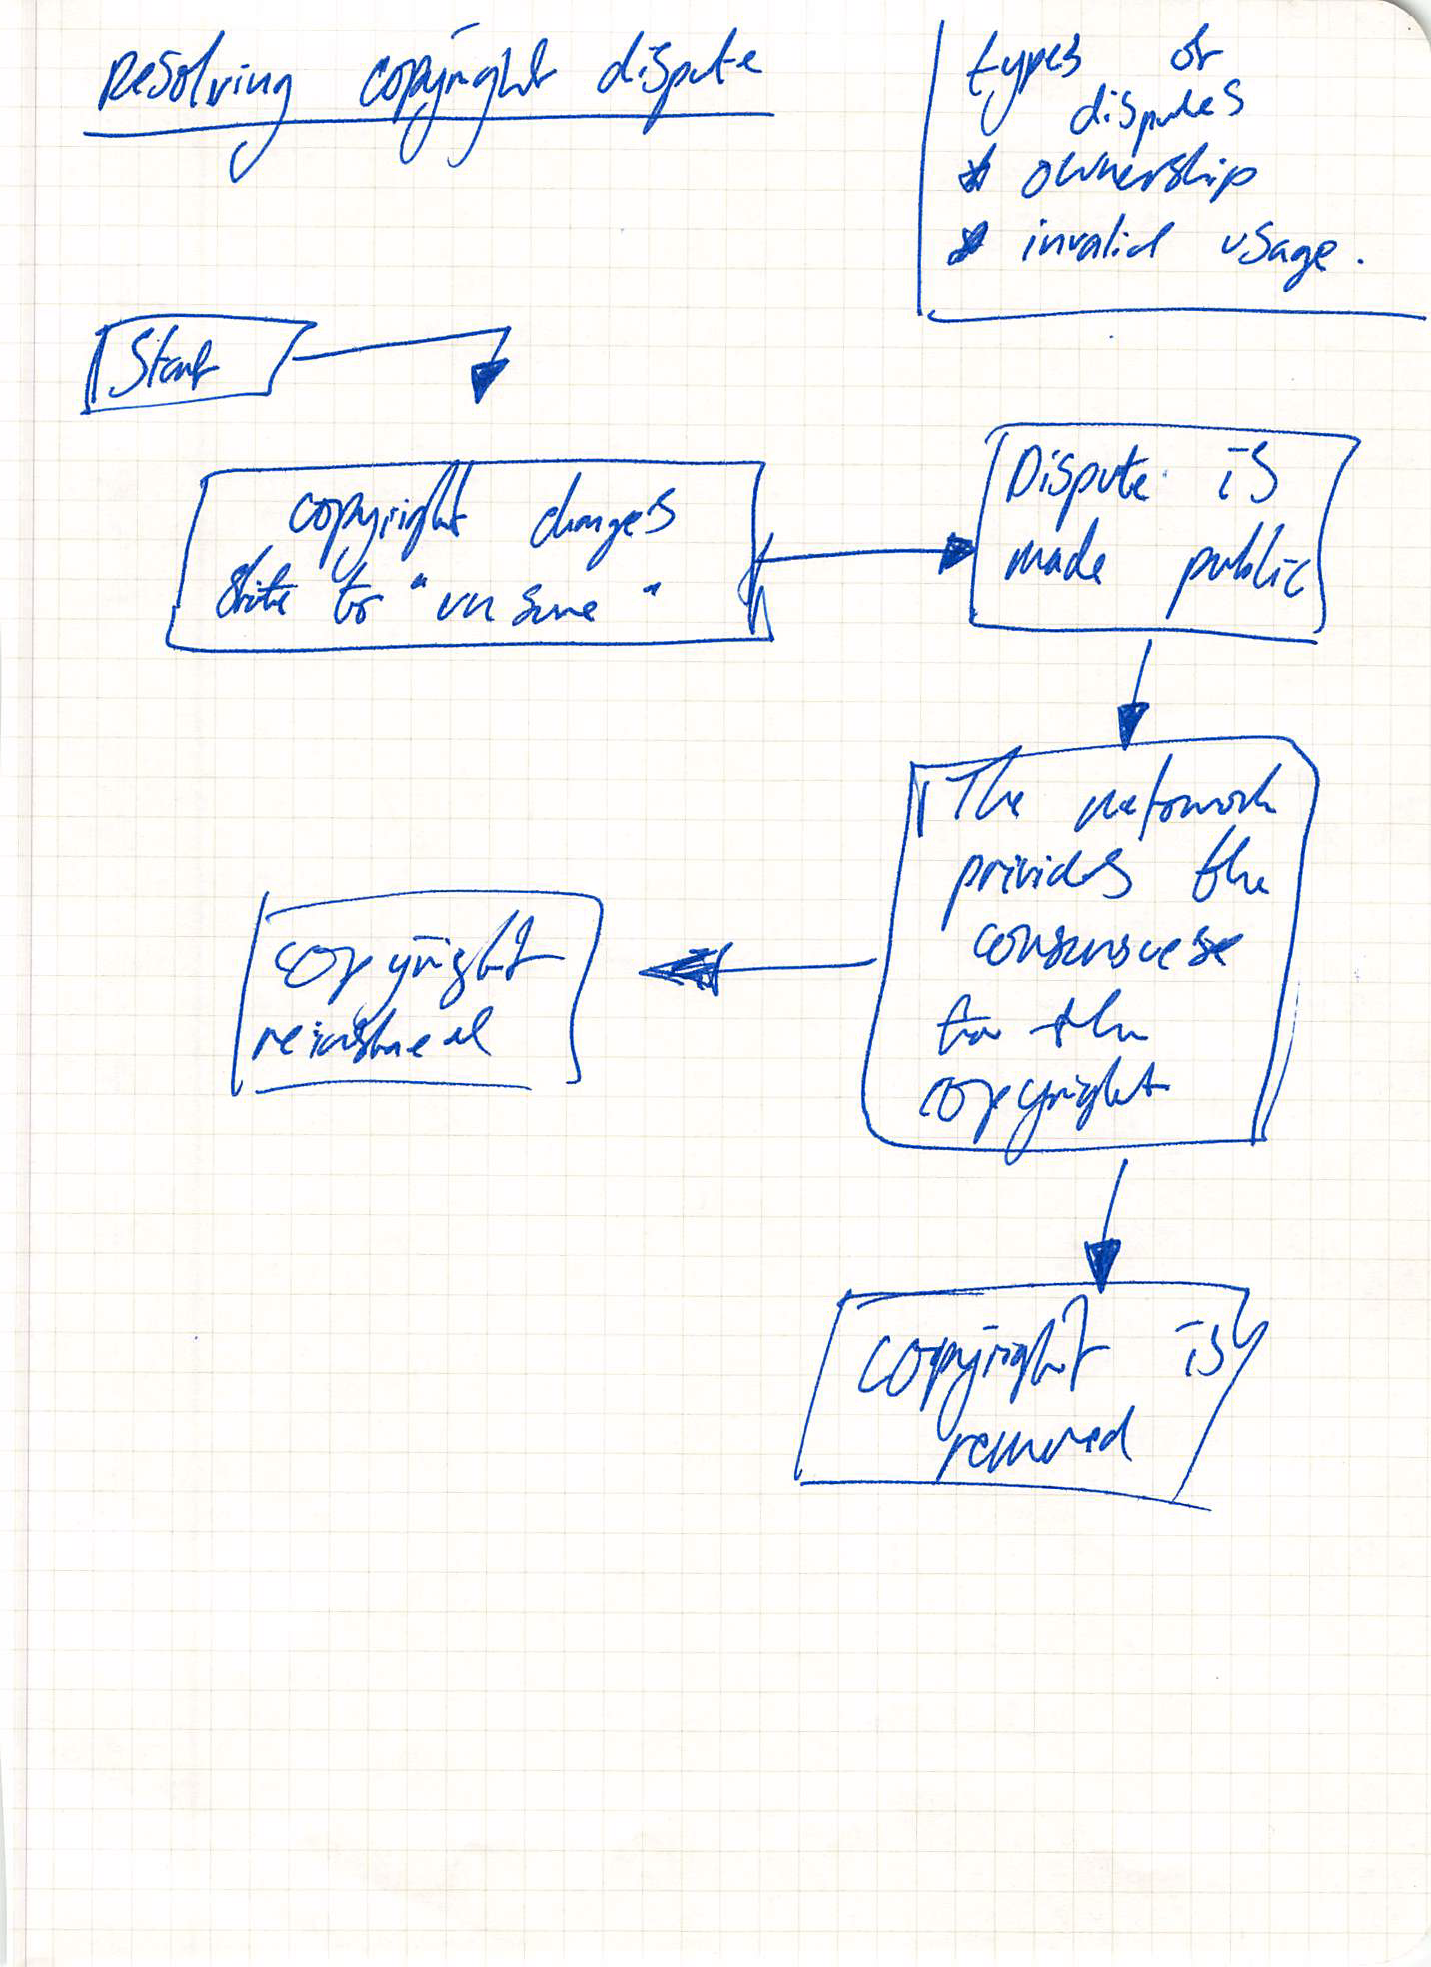 Resolving copyright dispute
types of
disputes
* ownership
* invalid usage.
Start
copyright changes
state to "unsure"
Dispute is
made public
The network
privides the
to the
copyright
copyright
copyright is
removed